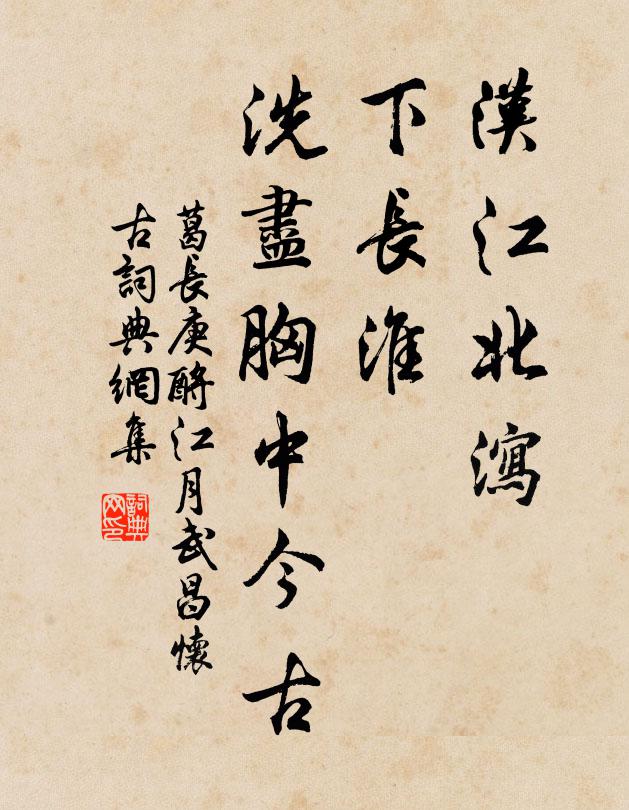 漢江北瀉
下長淮
洗盡胸中今古
葛長庚酹江月武昌懷
古詞典網集
詞典
网印